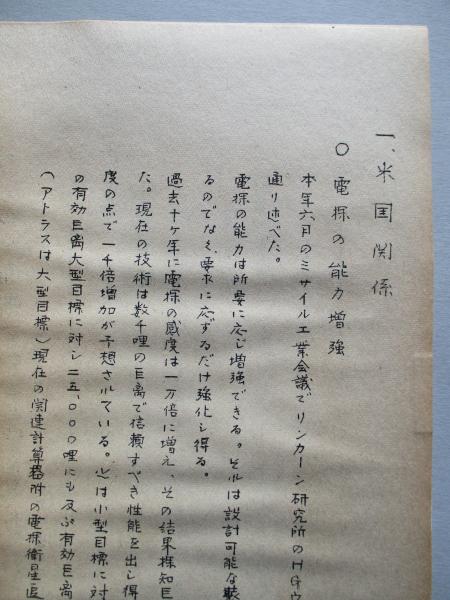 一、米国関係
〇 電探の能力増強
本年六月のミサイル工業会議でリンカーン研究所のHGウ
通り述べた。
電探の能力は所要に応じ増強できる。それは設計可能な装
るのでなく、要求に応ずるだけ強化し得る。
過去十ヶ年に電探の感度は一万倍に増え、その結果探知巨
た。現在の技術は数千哩の巨离で信頼すべき性能を出し得
度の点で一千倍増加が予想されている。之は小型目標に対
の有効巨离大型目標に対し二五、〇〇〇哩にも及ぶ有効巨离
(アトラスは大型目標)現在の関連計算器附の電探衛星追